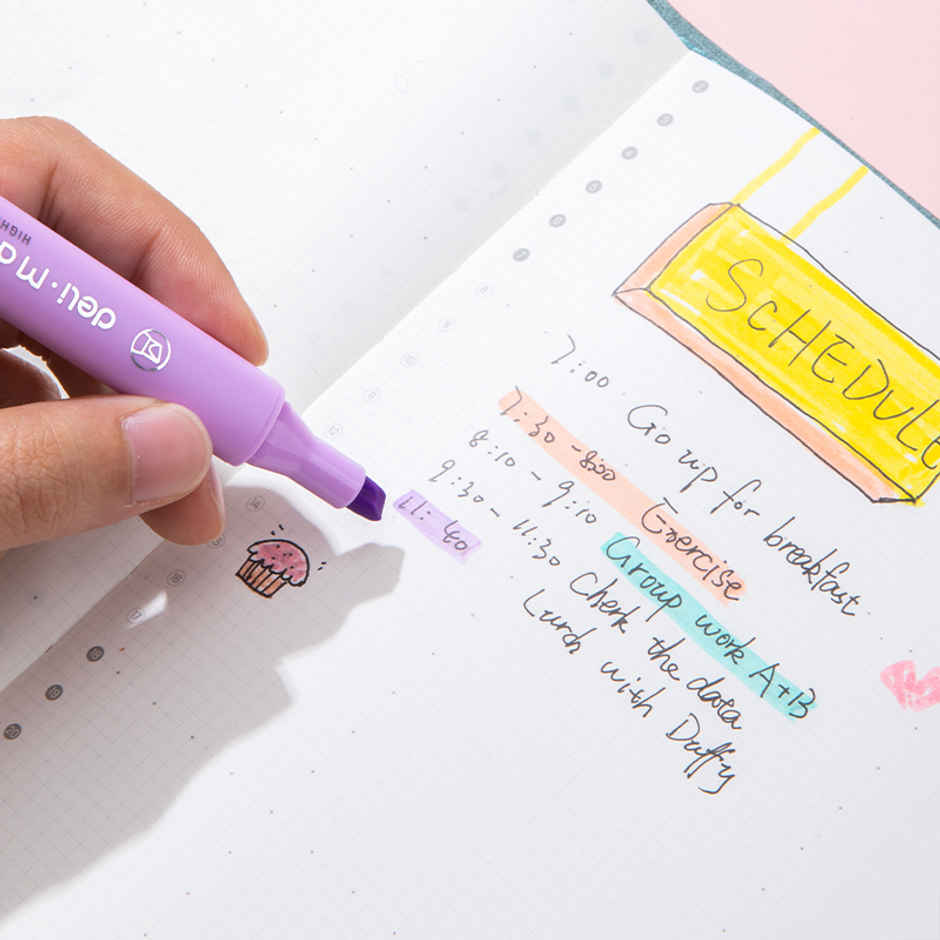 SCHEDULE
7:00 Go up for breakfast.
7:30-8:00 Exercise
8:10-9:10 Group work A+B
9:30-11:30 Cherk the data
11:40 Lurch with Duffy
deli·Ma
HIGH